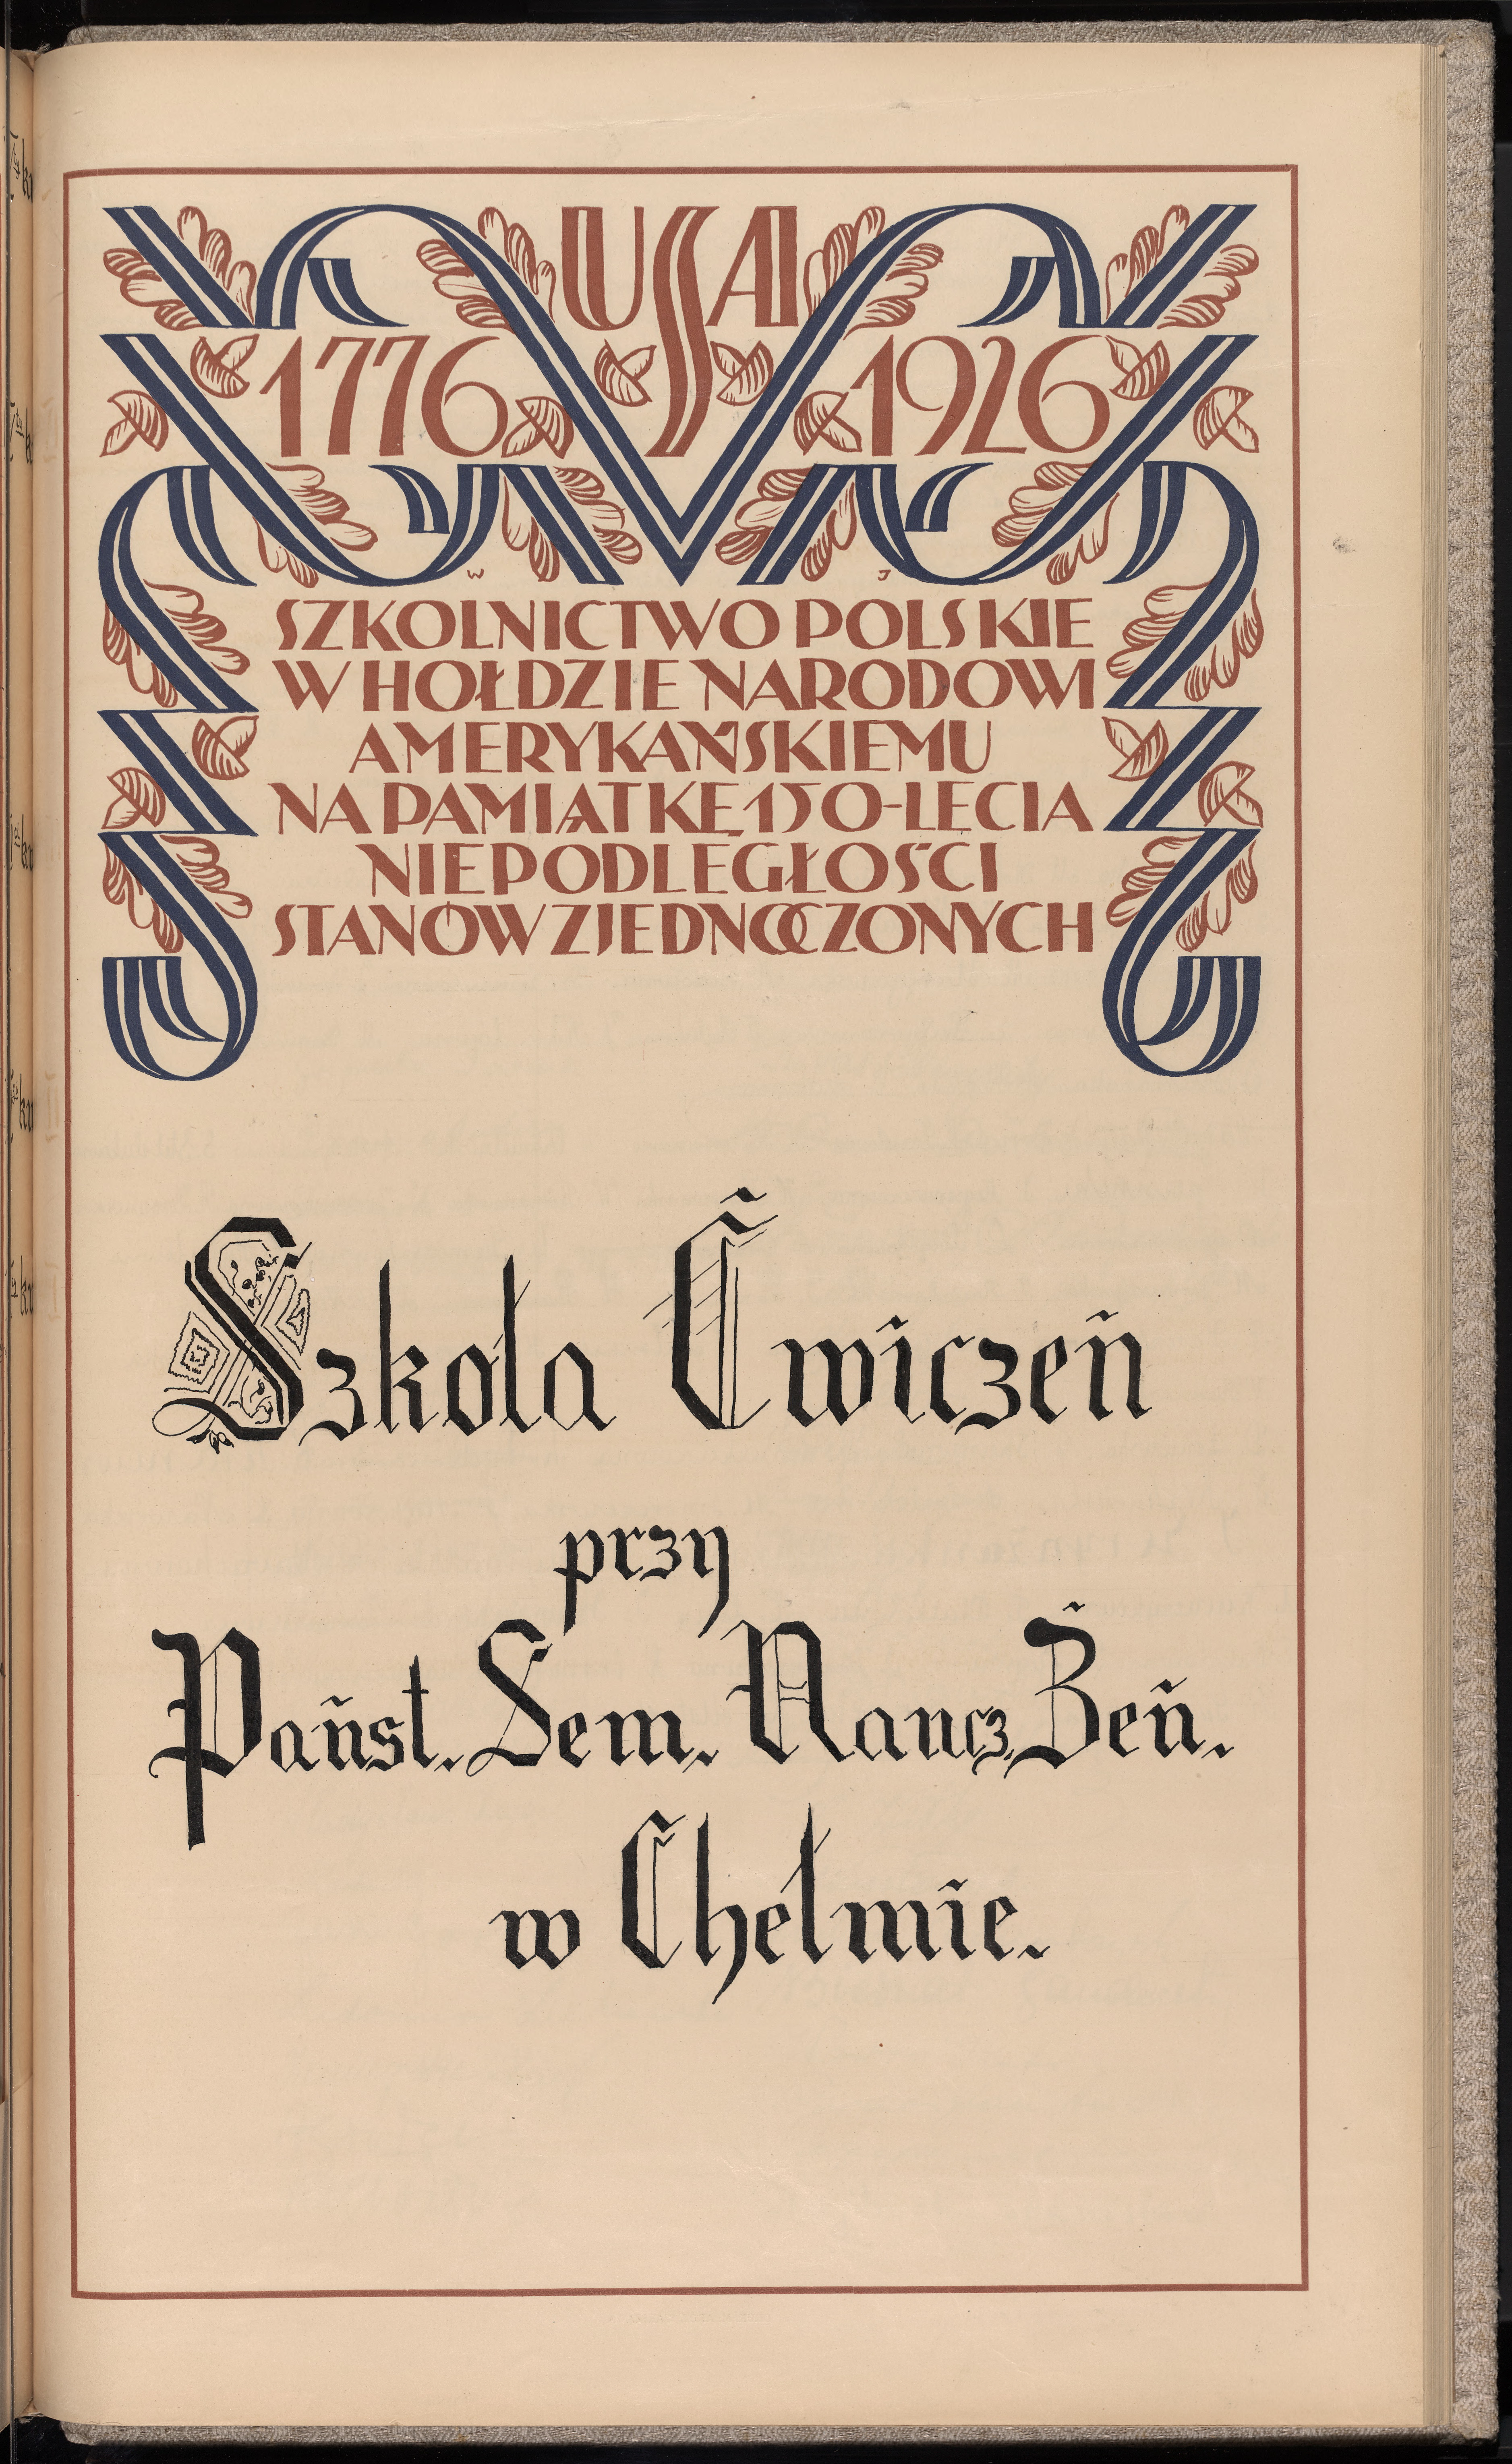 USA
1776 1926
W J
SZKOLNICTWO POLSKIE
W HOŁDZIE NARODOWI
AMERYKAŃSKIEMU
NA PAMIĄTKĘ 150-LECIA
NIEPODLEGŁOŚCI
STANÓW ZJEDNOCZONYCH
Szkoła Ćwiczeń
przy
Państ. Sem. Naucz. Żeń.
w Chełmie.